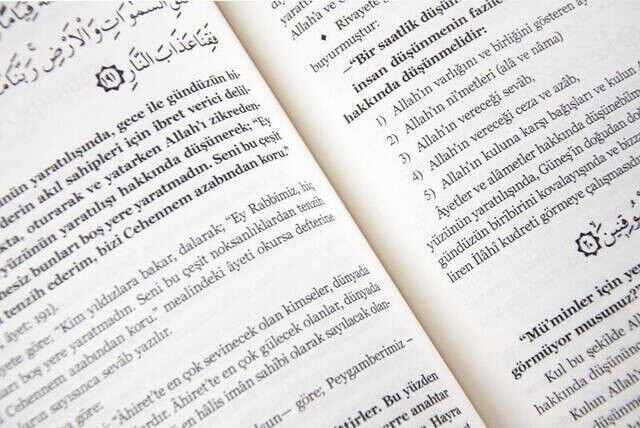 السَّمٰوَاتِ وَالْاَرْضِ رَبَّنَا مَا
فَقِنَا عَذَابَ النَّارِ ﴿١٩١﴾
nün yaratılışında, gece ile gündüzün bi-
derin akıl sahipleri için ibret verici delil-
kta, oturarak ve yatarken Allah'ı zikreden-
yüzünün yaratılışı hakkında düşünerek; "Ey
mesiz bunları boş yere yaratmadın. Seni bu çeşit
tenzih ederim, bizi Cehennem azabından koru."
âyet: 191).
yete göre: "Kim yıldızlara bakar, dalarak; "Ey Rabbimiz, hiç
arı boş yere yaratmadın. Seni bu çeşit noksanlıklardan tenzih
Cehennem azabından koru." mealindeki âyeti okursa defterine
ların sayısınca sevâb yazılır.
göre:
"Âhiret'te en çok sevinecek olan kimseler, dünyada
Âhiret'te en çok gülecek olanlar, dünyada
en hâlis imân sahibi olarak sayılacak olan-
olsun— göre; Peygamberimiz —
ttirler. Bu yüzden
erre anahtar
Hayra
yaratılı
Allah'a ve
♦ Rivayete
buyurmuştur:
—"Bir saatlik düşün
insan düşünmenin fazile
hakkında düşünmelidir:
1) Allah'ın varlığını ve birliğini gösteren ây
2) Allah'ın ni'metleri (alâ ve nâma)
3) Allah'ın vereceği sevâb,
4) Allah'ın vereceği ceza ve azâb,
5) Allah'ın kuluna karşı bağışları ve kulun A
Âyetler ve alâmetler hakkında düşünebilme
yüzünün yaratılışında. Güneş'in doğudan do
gündüzün biribirini kovalayışında ve bizza
liren İlâhî kudreti görmeye çalışması
﴿٢٠﴾
"Mü'minler için ye
görmüyor musunuz
Kul bu şekilde A
hakkında düşünce
Kulun Allah'